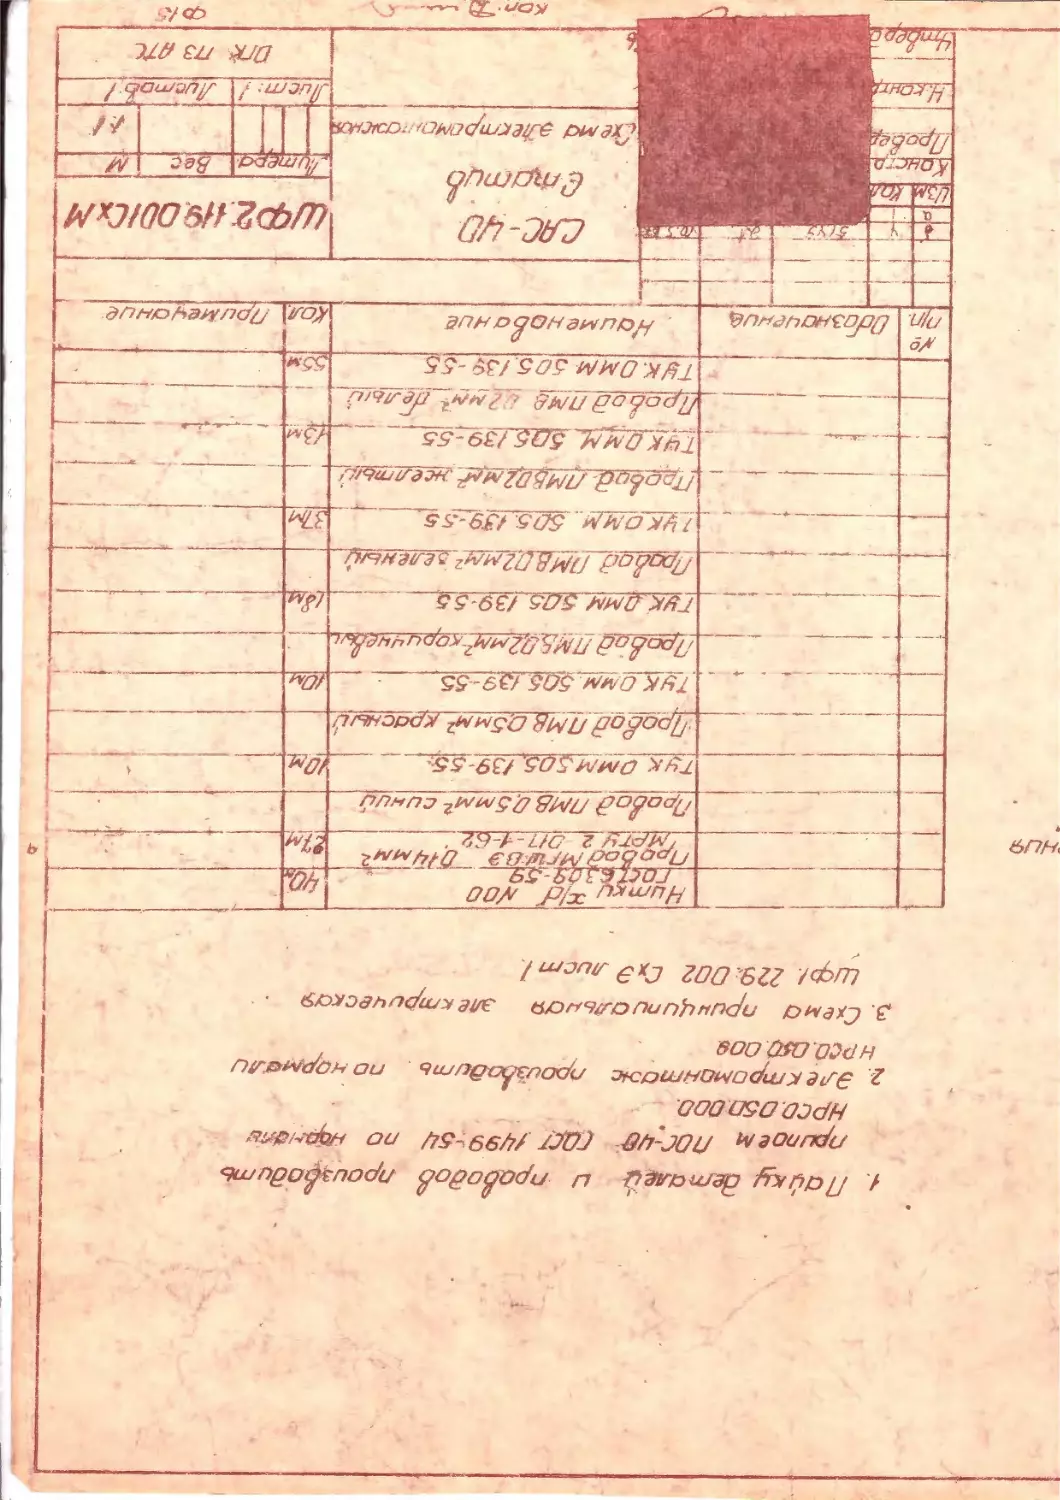 1. Пайку деталей и проводов производить
припоем ПОС-40 ГОСТ 1499-54 по нормали
НРСО.050.000.
2. Электромонтаж производить по нормали
НРСО.050.009
3. Схема принципиальная электрическая
ШФ1.229.002 СхЭ лист 1.
Нитки х/б №00 40м
ГОСТ 6309-59
Провод МГШВЭ 0,14мм² 27м
МРТУ 2.017-1-62
Провод ПМВ 0,5мм² синий
ТУК ОММ 505.139-55 10м
Провод ПМВ 0,5мм² красный
ТУК ОММ 505.139-55 10м
Провод ПМВ 0,2мм² коричневый
ТУК ОММ 505 139-55 18м
Провод ПМВ 0,2мм² зеленый
ТУК ОММ 505.139-55 37м
Провод ПМВ 0,2мм² желтый
ТУК ОММ 505.139-55 43м
Провод ПМВ 0,2мм² белый
ТУК.ОММ 505.139-55 55м
№ п/п Обозначение Наименование Кол Примечание
Изм Кол
Констр
Провер
Н.контр
Утверд
САС-40
Статив
Схема электромонтажная
ШФ2.119.001СхМ
Литера Вес М
1:1
Лист: 1 Листов 1
ОГК ПЗ АТС
Кол.
Ф15
ния